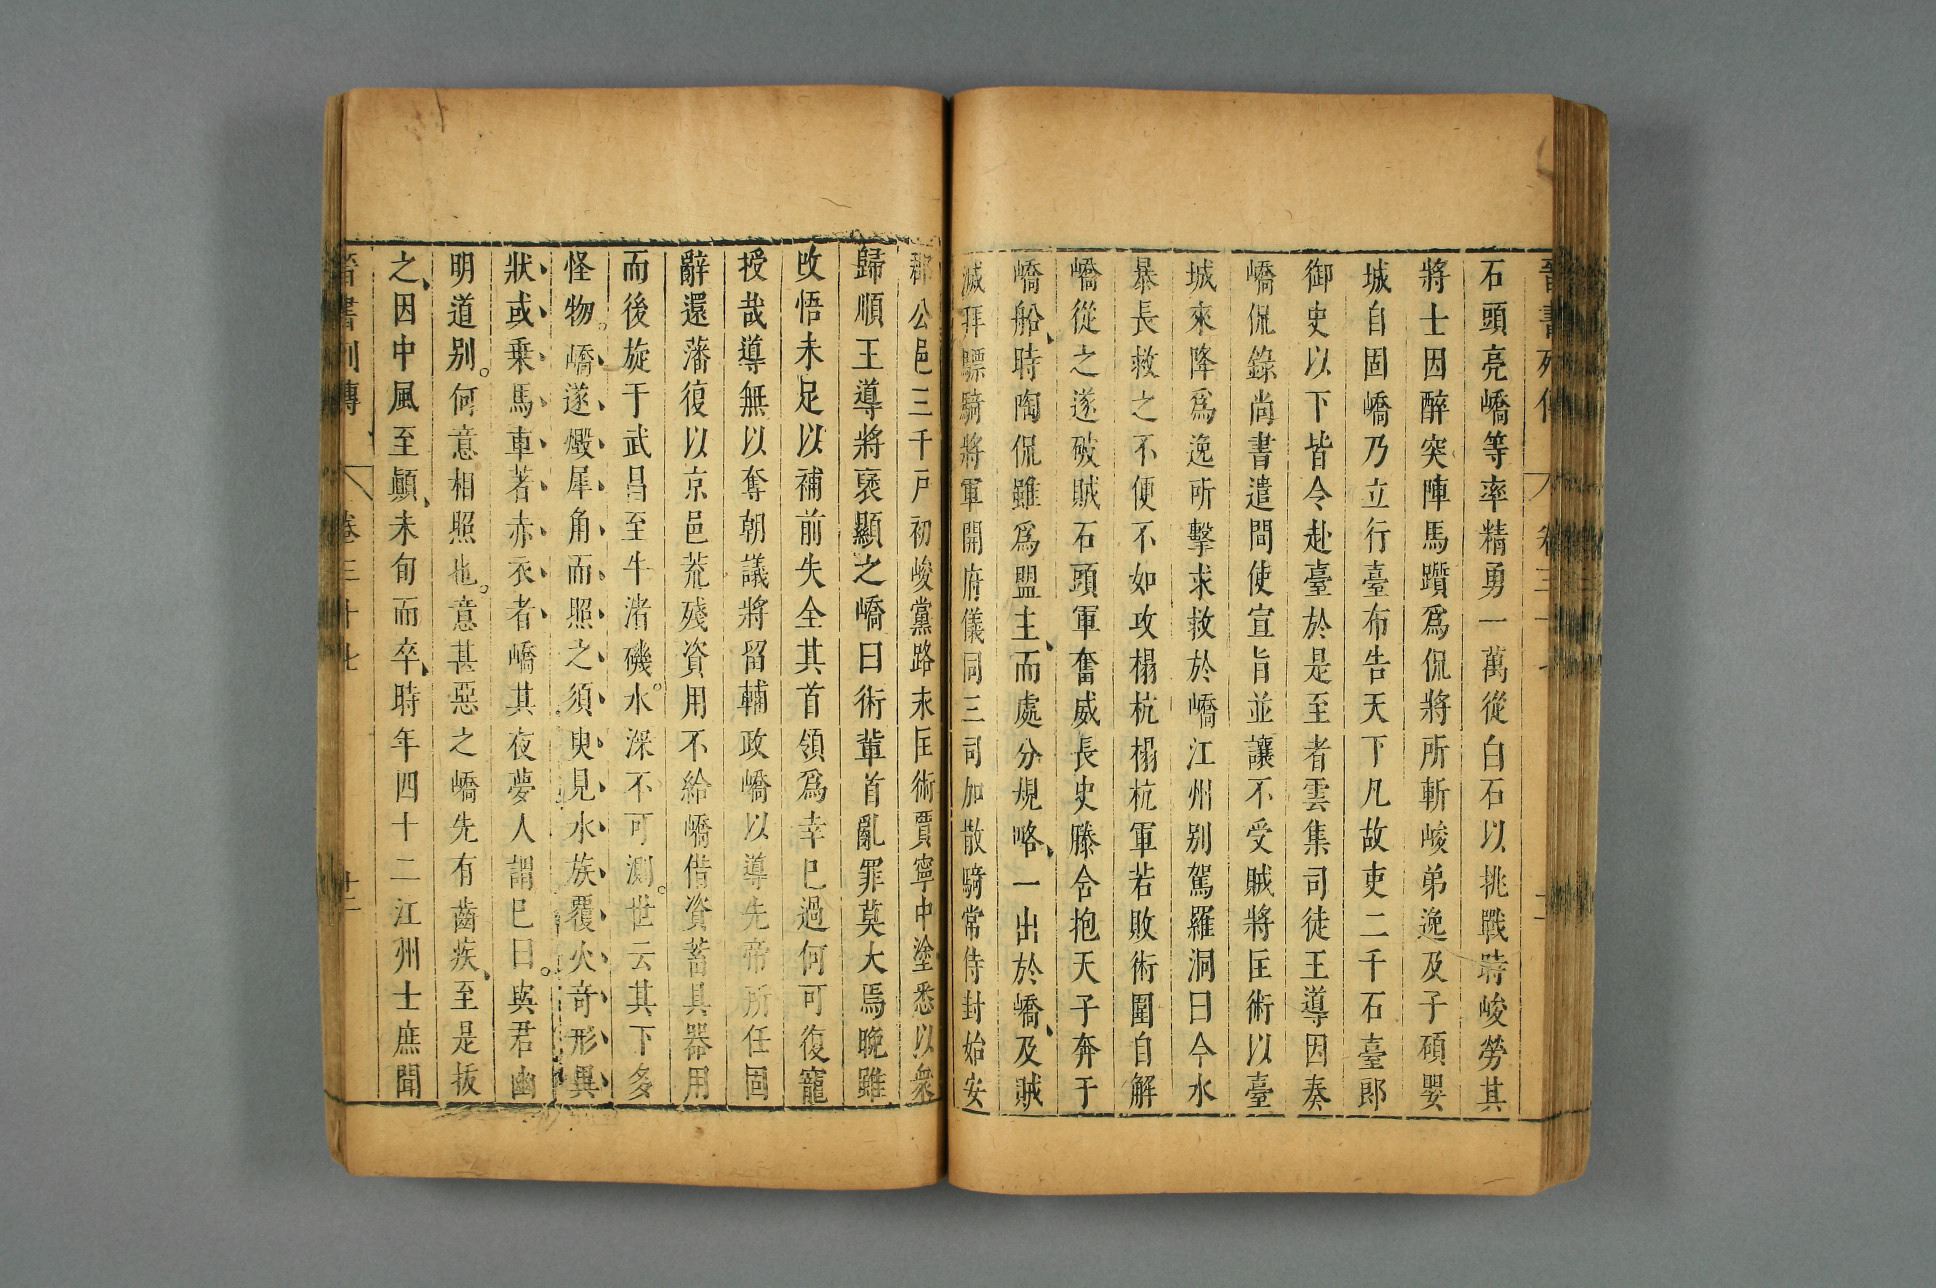 石頭亮嶠等率精勇一萬從白石以挑戰時峻勞其
將士因醉突陣馬躓爲侃將所斬峻弟逸及子碩嬰
城自固嶠乃立行臺布告天下凡故吏二千石臺郎
御史以下皆令赴臺於是至者雲集司徒王導因奏
嶠侃錄尚書遣間使宣旨並讓不受賊將匡術以臺
城來降爲逸所擊求救於嶠江州別駕羅洞曰今水
暴長救之不便不如攻榻杭榻杭軍若敗術圍自解
嶠從之遂破賊石頭軍奮威長史滕含抱天子奔于
嶠船、時陶侃雖爲盟主、而處分規略、一出於嶠、及賊
滅拜驃騎將軍開府儀同三司加散騎常侍封始安
郡公邑三千戶初峻黨路永匡術賈寧中塗悉以衆
歸順王導將襃顯之嶠曰術輩首亂罪莫大焉晚雖
改悟未足以補前失全其首領爲幸已過何可復寵
授哉導無以奪朝議將留輔政嶠以導先帝所任固
辭還藩復以京邑荒殘資用不給嶠借資蓄具器用
而後旋于武昌至牛渚磯水。深不可測。世云其下多
怪物。嶠遂燬犀角而照之須臾見水族覆火奇形異
狀或乗馬車著赤衣者嶠其夜夢人謂已曰。與君幽
明道别。何意相照也。意甚惡之嶠先有齒疾、至是拔
之、因中風至顚、未旬而卒、時年四十二江州士庶聞
晉書列傳
卷三十七
十二